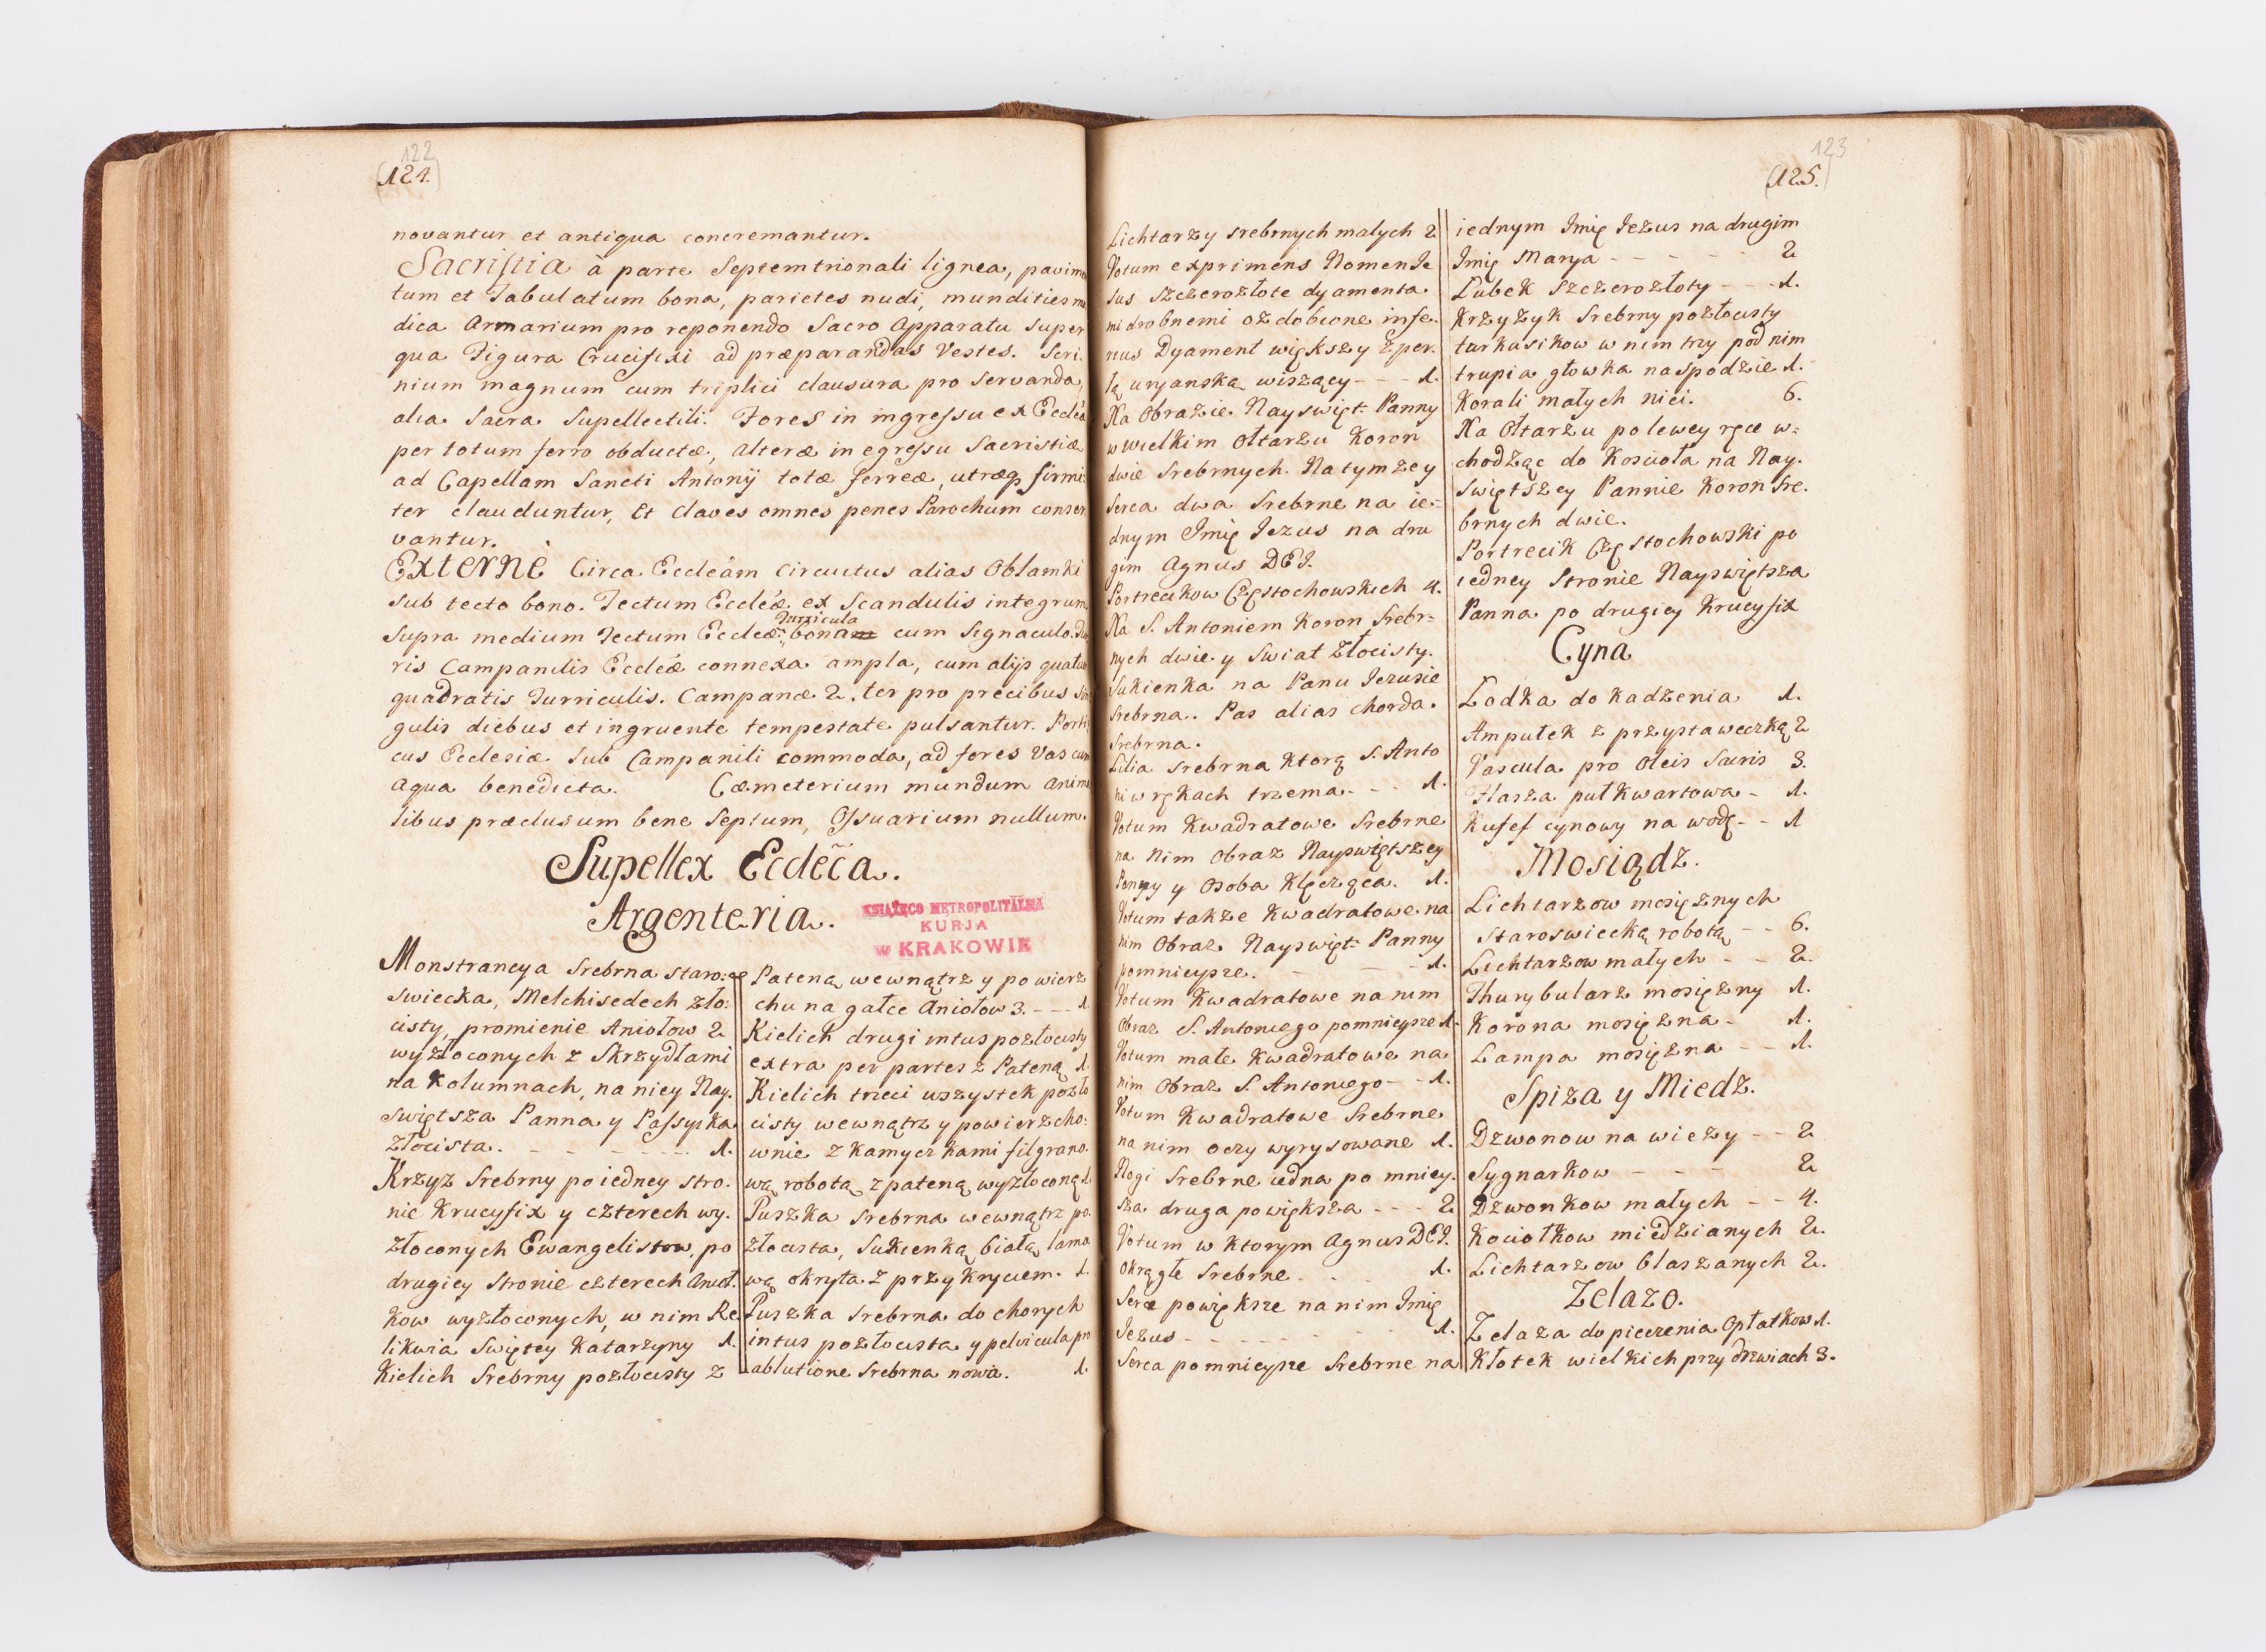 122
(124.)
novantur et antiqua concremantur.
Sacristia à parte Septemtrionali lignea, pavimen
tum et Tabulatum bona, parietes nudi, mundities mo
dica Armarium pro reponendo Sacro Apparatu super
qua Figura Crucifixi ad præparandas Vestes. Scri:
nium magnum cum triplici clausura pro servanda
alia Sacra Supellectili. Fores in ingressu ex Eccleã
per totum ferro obductæ, alteræ in egressu Sacristiæ
ad Capellam Sancti Antonij totæ ferreæ, utræq firmi:
ter clauduntur, Et Claves omnes penes Parochum conser
vantur.
Externè Circa Eccleám circuitus alias Obłamki
sub tecto bono. Tectum Eccleæ ex Scandulis integrum
Turricula
Supra medium Tectum Eccleæ bona cum Signaculo. Tur
ris Campanilis Eccleæ connexa ampla, cum alijs quatuor
quadratis Turriculis. Campanæ 2. ter pro precibus sin
gulis diebus et ingruente tempestate pulsantur. Porti
cus Ecclesiæ sub Campanili commoda, ad fores Vas cum
aqua benedicta. Cæmeterium mundum anima
libus præclusum bene Septum, Ossuarium nullum.
Supellex Eccleca.
Argenteria.
KSIĄŻĘCO METROPOLITALNA
KURJA
w KRAKOWIE
Monstrancya Srebrna staro:
swiecka, Melchisedech zło:
cisty, promienie Aniołow 2
wyzłoconych z Skrzydłami
na Kolumnach, na niey Nay.
swiętsza Panna y Passyika
złocista. - - - - - 1.
Krzyz Srebrny po iedney stro.
nie Krucyfix y czterech wy.
złoconych Ewangelistow, po
drugiey stronie czterech Anioł.
kow wyzłoconych, w nim Re
likwia Swiętey Katarzyny 1.
Kielich Srebrny pozłocisty z
Pateną wewnątrz y powierz
chu na gałce Aniołow 3. - - - 1.
Kielich drugi intus pozłocisty
extra per partes z Pateną 1.
Kielich trzeci wszystek pozło
cisty wewnątrz y powierzcho:
wnie z kamyczkami filgrano.
wą robotą z pateną wyzłoconą 1.
Puszka srebrna wewnątrz po.
złocista, sukienką białą lamo
wą okryta z przykryciem. 1.
Puszka srebrna do chorych
intus pozłocista y pelvicula pro
ablutione srebrna nowa. 1.
123
(125.)
Lichtarzy srebrnych małych 2
Votum exprimens Nomen Je
sus szczerozłote dyamenta.
mi drobnemi ozdobione infe.
rius Dyament większy z per.
łą uryanską wiszący - - - 1.
Na Obrazie Nayswięt: Panny
w wielkim Ołtarzu Koron
dwie srebrnych. Na tymzey
Serca dwa srebrne na ie:
dnym Jmię Jezus na dru
gim Agnus DEI.
Portrecikow Częstochowskich 4.
Na S. Antoniem Koron srebr:
nych dwie y Swiat złocisty.
Sukienka na Panu Jezusie
srebrna. Pas alias chorda.
srebrna.
Lilia srebrna ktorą S. Anto
ni w rękach trzema. - - 1.
Votum Kwadratowe Srebrne
na nim Obraz Nayswiętszey
Panny y Osoba Klęcząca. 1.
Votum takze Kwadratowe na
nim Obraz Nayswięt: Panny
pomnieysze. - - - 1.
Votum Kwadratowe na nim
Obraz S. Antoniego pomnieysze 1.
Votum małe Kwadratowe na
nim Obraz S. Antoniego - - 1.
Votum Kwadratowe Srebrne
na nim oczy wyrysowane 1.
Nogi srebrne iedna po mniey.
sza druga powiększa - - - 2
Votum w ktorym Agnus DEI.
okrągłe srebrne . . . 1.
Serce powiększe na nim Jmię
Jezus - - - - - - - 1.
Serca pomnieysze Srebrne na
iednym Jmię Jezus na drugim
Jmię Marya - - - - - 2
Lubek szczerozłoty - - - 1.
Krzyzyk Srebrny pozłocisty
turkusikow w nim trzy pod nim
trupia głowka na spodzie 1.
Korali małych nici. 6.
Na Ołtarzu po lewey ręce w:
chodząc do Koscioła na Nay.
swiętszey Pannie Koron sre.
brnych dwie.
Portrecik Częstochowski po
iedney stronie Nayswiętsza
Panna po drugiey Krucyfix
Cyna
Lodka do kadzenia 1.
Ampułek z przystaweczką 2
Vascula pro Oleis Sacris 3.
Flasza puł kwartowa - 1.
Kufel cynowy na wodę - - 1
Mosiądz.
Lichtarzow mosięznych
staroswiecką robotą - - 6.
Lichtarzow małych - - 2.
Thurybularz mosięzny 1.
Korona mosięzna - 1.
Lampa mosięzna - - 1.
Spiza y Miedz.
Dzwonow na wiezy - - 2
Sygnarkow - - - 2
Dzwonkow małych - - 4.
Kociołkow miedzianych 2.
Lichtarzow blaszanych 2.
Zelazo.
Zelaza do pieczenia Opłatkow 1.
Kłotek wielkich przy drzwiach 3.